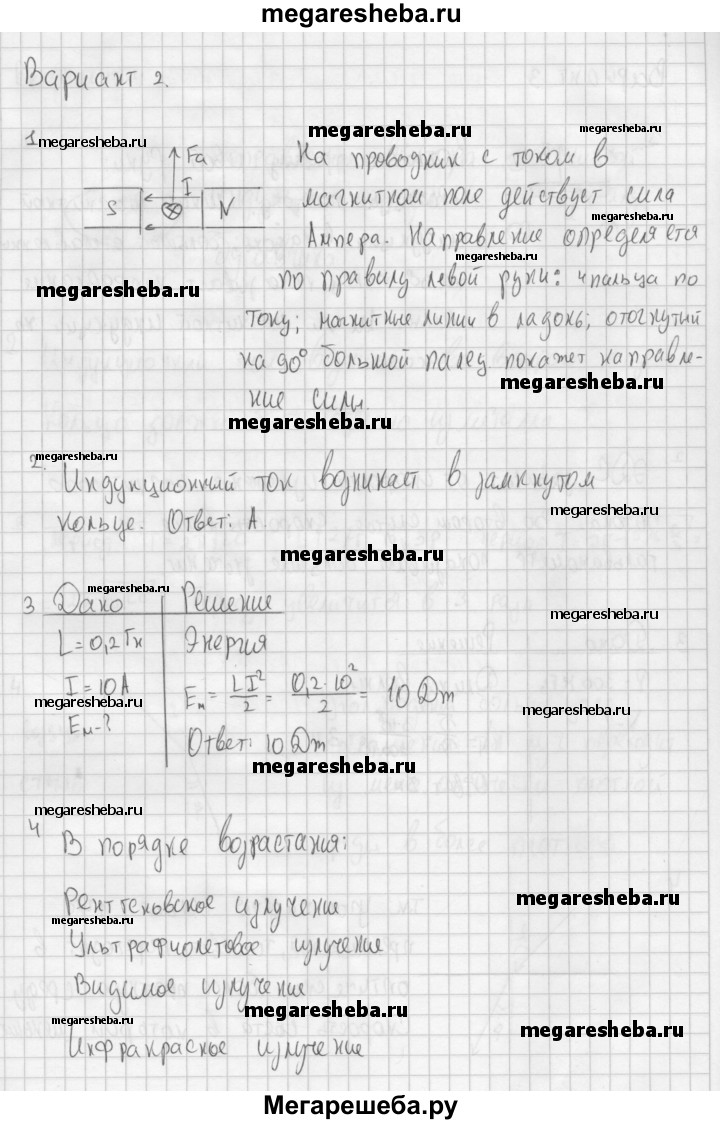 megaresheba.ru
Вариант 2.
1 megaresheba.ru
Fa
I
S
N
На проводник с током в
megaresheba.ru
megaresheba.ru
магнитном поле действует сила
megaresheba.ru
Ампера. Направление определяется
megaresheba.ru
по правилу левой руки: 4 пальца по
megaresheba.ru
току; магнитные линии в ладонь; отогнутый
megaresheba.ru
на 90° большой палец покажет направле-
megaresheba.ru
ние силы.
megaresheba.ru
megaresheba.ru
2. Индукционный ток возникает в замкнутом
megaresheba.ru
кольце. Ответ: А.
megaresheba.ru
megaresheba.ru
3 Дано Решение
megaresheba.ru
L = 0,2 Гн Энергия
megaresheba.ru
I = 10 А
Eм = LI²/2 = 0,2·10²/2 = 10 Дж
megaresheba.ru
megaresheba.ru
Eм - ?
Ответ: 10 Дж
megaresheba.ru
megaresheba.ru
4 В порядке возрастания:
Рентгеновское излучение
megaresheba.ru
megaresheba.ru
Ультрафиолетовое излучение
Видимое излучение
megaresheba.ru
megaresheba.ru
megaresheba.ru
Инфракрасное излучение
Мегарешеба.ру